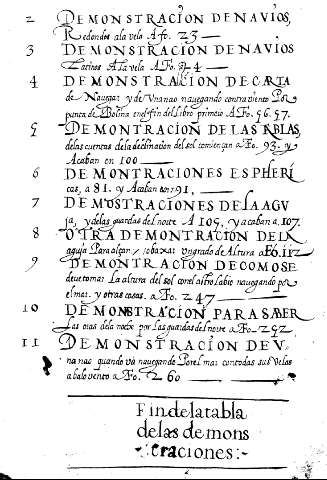 2 DEMONSTRACION DE NAVIOS,
Redondos ala vela A fo. 23
3 DEMONSTRACION DE NAVIOS
Latinos A la vela A Fo. 24
4 DEMONSTRACION DE CARTA
de Nauegar y de Vna nao nauegando contra viento Por
punta de Bolina en el fin del Libro primero A Fo. 56. 57.
5 DEMONTRACION DE LAS TABLAS,
de las cuentas de la declinacion del sol comiençan a Fo. 93. y
Acaban en 100
6 DEMONTRACIONES ESPHERI
cas, a 81. y Acaban en 91,
7 DEMOSTRACIONES DE LA AGV
ja, y de las guardas del norte A 105, y acaban a. 107.
8 OTRA DEMONTRACION DE LA
aguja Para alçar, o baxar Vn grado de Altura a Fo. 112
9 DEMONTRACION DE COMO SE
deue tomar La altura del sol con el astrolabio nauegando por
el mar, y otras cosas. a Fo. 247
10 DEMONSTRACION PARA SABER
Las oras dela noche por Las guardas del norte a Fo. 252
11 DEMONSTRACION DE V
na nao quando va nauegando Por el mar con todas sus velas
a balo vento a Fo. 260
Fin de la tabla
de las demons
traciones:-